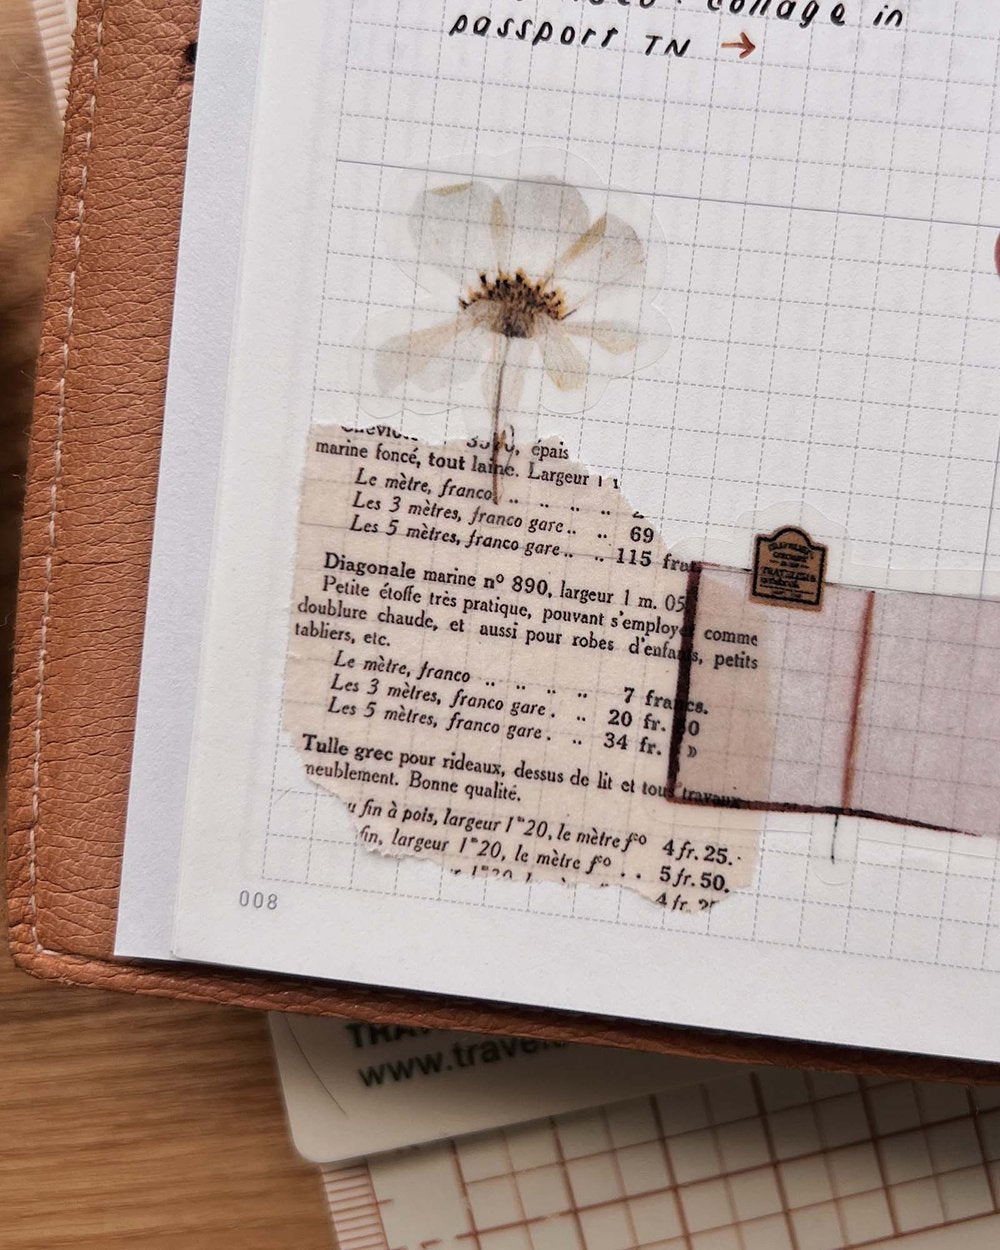 collage in
passport TN →
épais
marine foncé, tout laine. Largeur 1
Le mètre, franco .. .. .. ..
Les 3 mètres, franco gare .. .. 69
Les 5 mètres, franco gare .. .. 115
Diagonale marine nº 890, largeur 1 m. 05
Petite étoffe très pratique, pouvant s'employer comme
doublure chaude, et aussi pour robes d'enfants, petits
tabliers, etc.
Le mètre, franco .. .. .. .. 7 francs.
Les 3 mètres, franco gare . .. 20 fr. 50
Les 5 mètres, franco gare . .. 34 fr. »
Tulle grec pour rideaux, dessus de lit et tous travaux
meublement. Bonne qualité.
fin à pois, largeur 1ᵐ20, le mètre fº 4 fr. 25.
fin, largeur 1ᵐ20, le mètre fº . . 5 fr. 50.
4 fr.
TRAVELER'S
008
www.trave